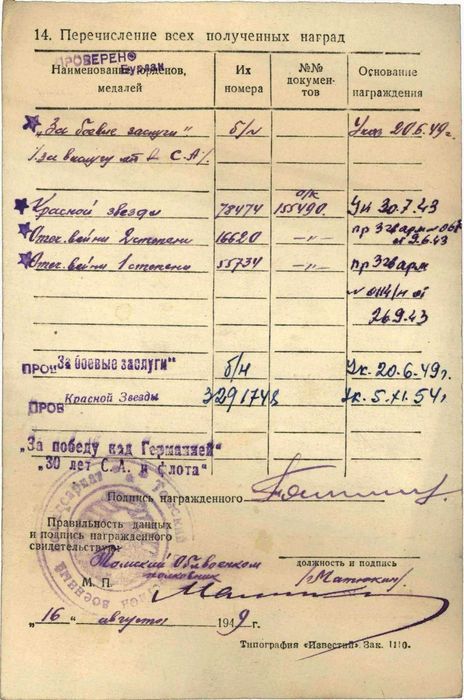 14. Перечисление всех полученных наград
ПРОВЕРЕНО
Наименование орденов, медалей
Их номера
№№ документов
Основание награждения
„За боевые заслуги" б/н Указ 20.6.49г.
/за выслугу лет в С.А/
Красной звезды 78474 о/к 155490. Ук 30.7.43
Отеч. войны 2 степени 16620 —„— пр 3 гв арм
от 9.6.43
Отеч. войны 1 степени 55734 —„— пр 3 гв арм
от
26.9.43
ПРОВ „За боевые заслуги" б/н Ук. 20.6.49г.
ПРОВ Красной Звезды Ук. 5.XI.54г
„За победу над Германией"
„30 лет С.А. и флота"
Подпись награжденного
Правильность данных
и подпись награжденного
свидетельствую:
Томский Облвоенком
полковник
должность и подпись
/Матюхин/
М. П.
„16" августа 1949г.
Типография «Известий» Зак. 1110.